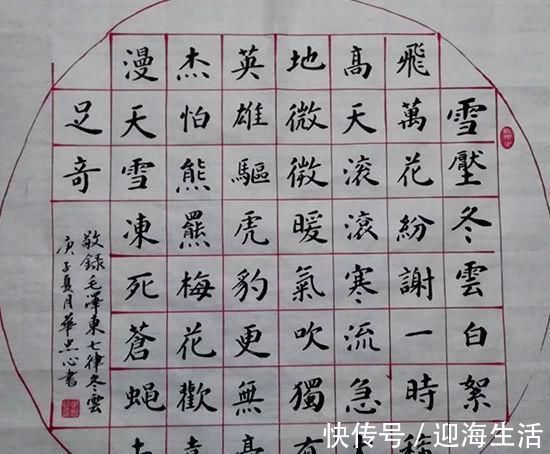 雪壓冬雲白絮
飛萬花紛謝一時稀
高天滾滾寒流急
地微微暖氣吹獨有
英雄驅虎豹更無豪
杰怕熊羆梅花歡喜
漫天雪凍死蒼蝇未
足奇
敬錄毛澤東七律冬雲
庚子夏月華忠心書
快传号／迎海生活